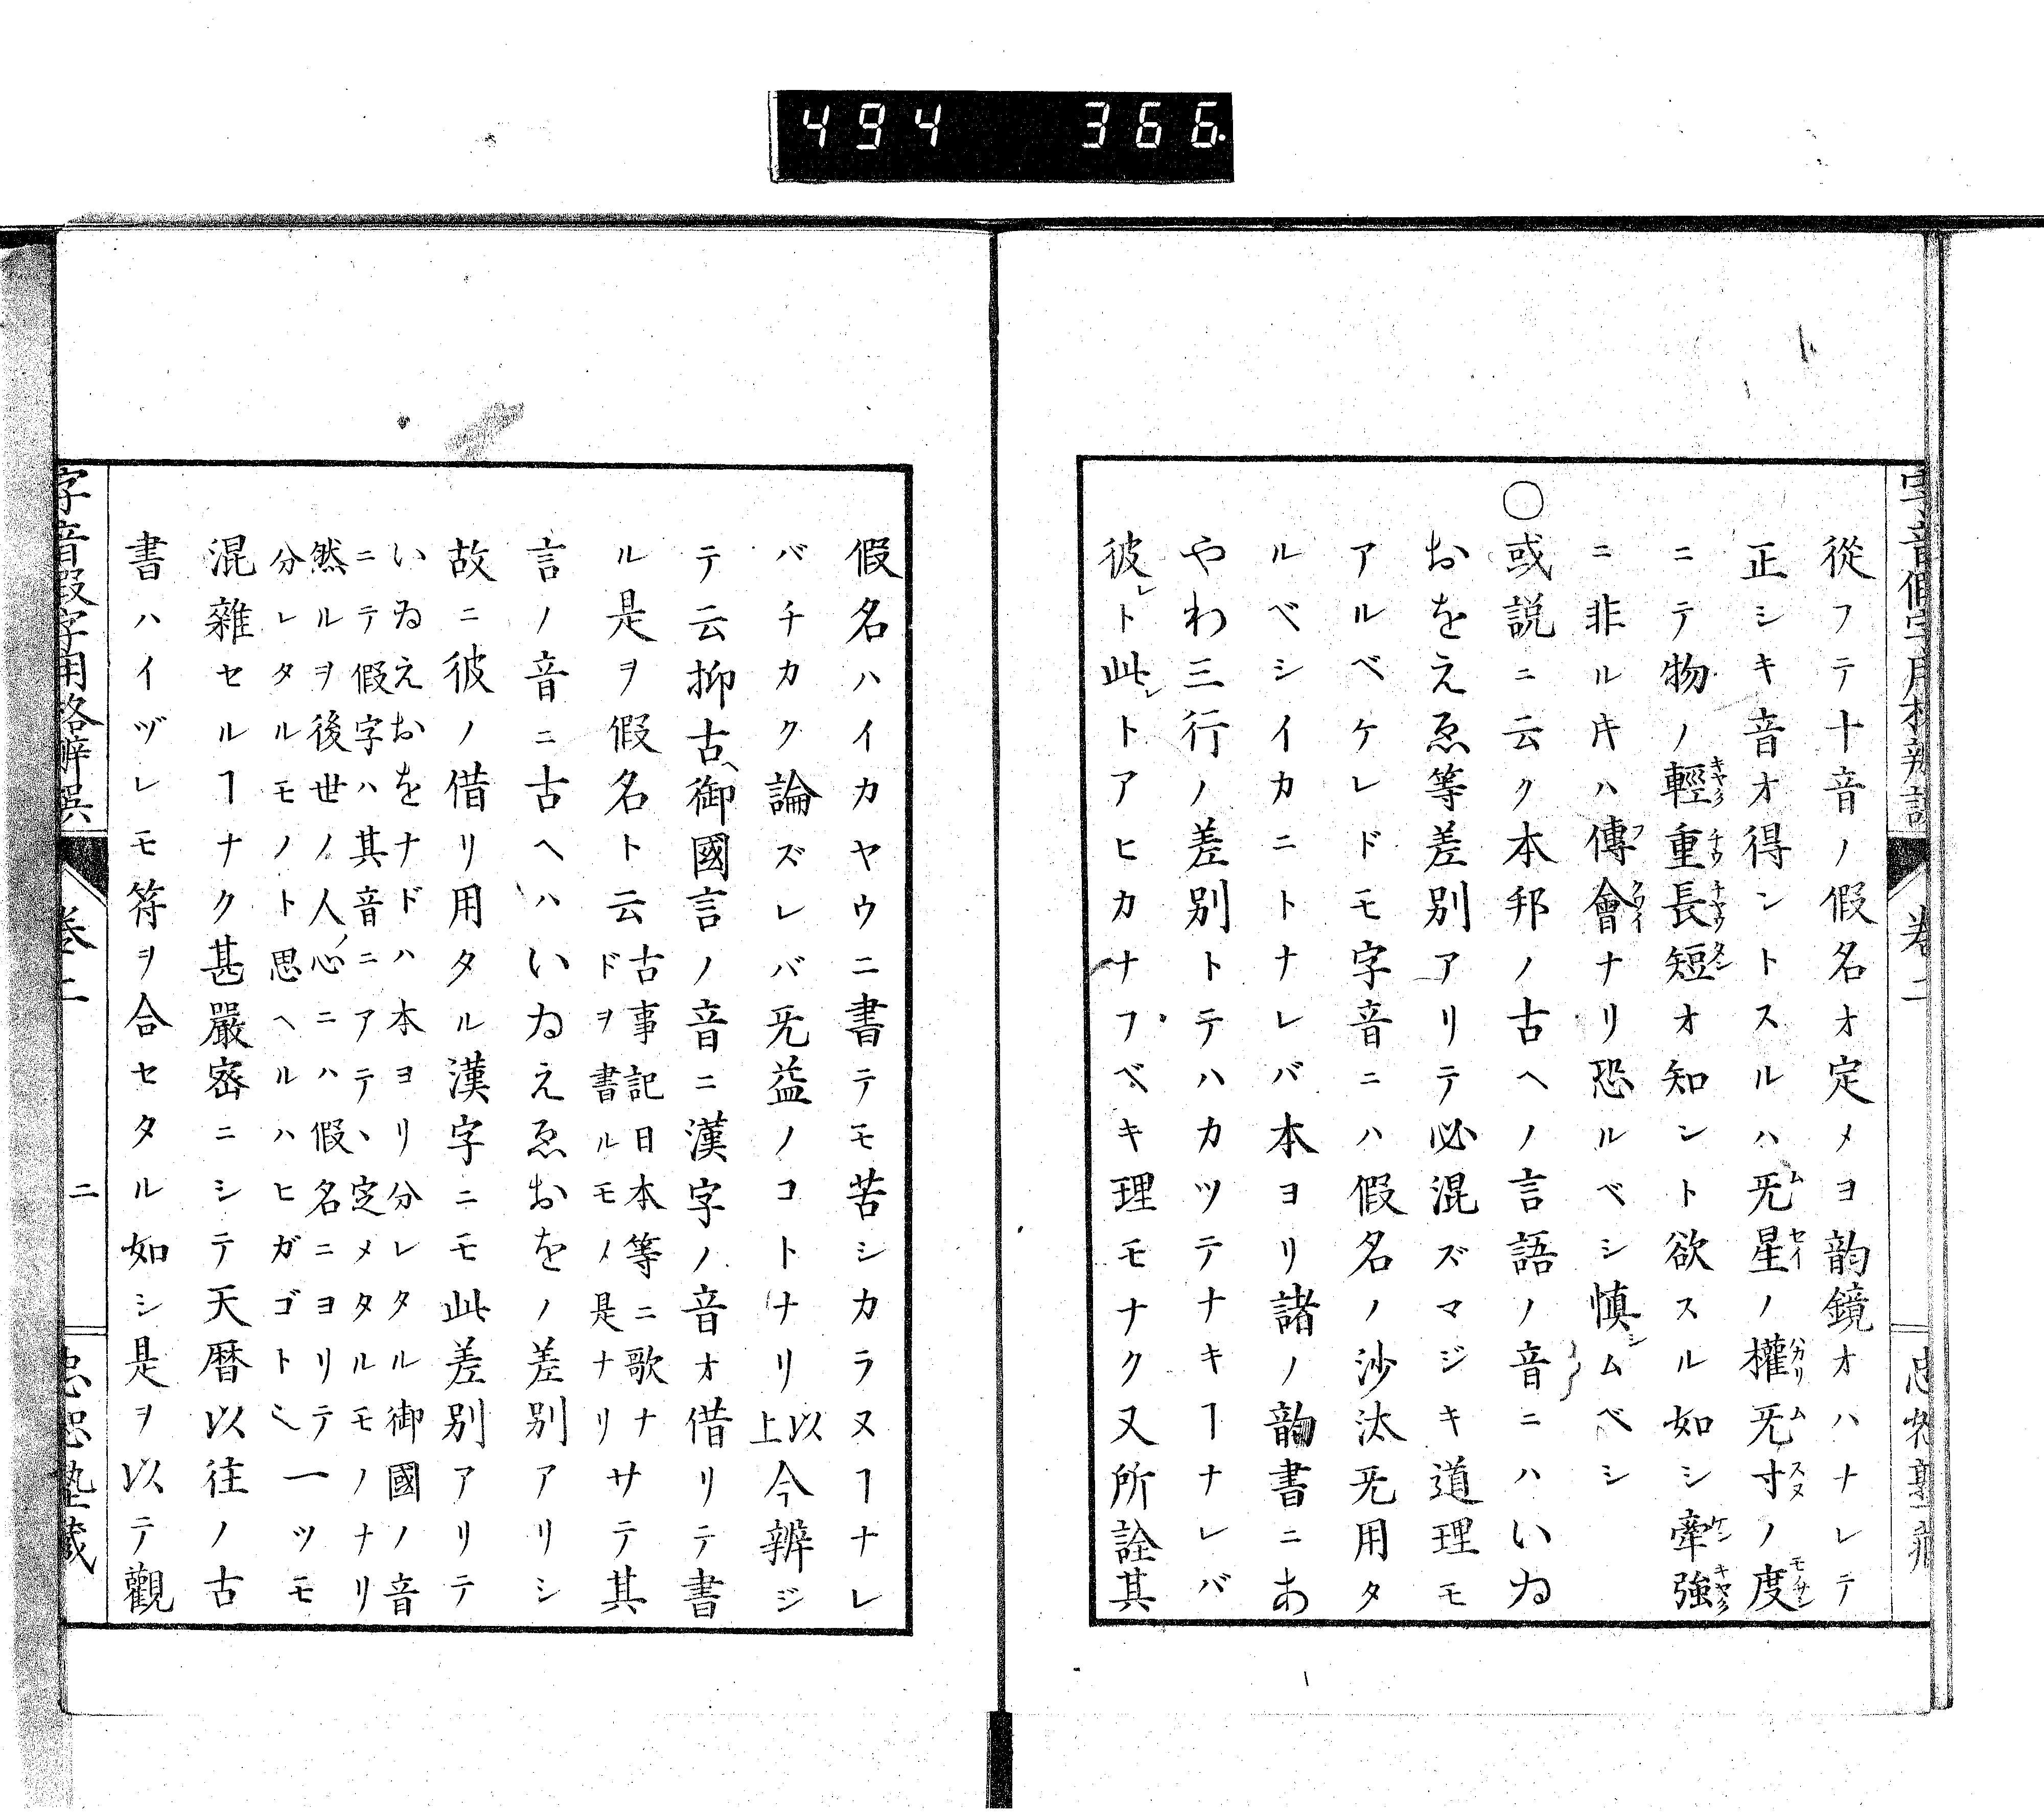 494 366
從フテ十音ノ假名オ定メヨ韵鏡オハナレテ
正シキ音オ得ントスルハ旡星ノ權旡寸ノ度
ニテ物ノ輕重長短オ知ント欲スル如シ牽強
ニ非ル𪜈ハ傳會ナリ恐ルベシ慎ムベシ
○或説ニ云ク本邦ノ古ヘノ言語ノ音ニハいゐ
おをえゑ等差別アリテ必混ズマジキ道理モ
アルベケレドモ字音ニハ假名ノ沙汰旡用タ
ルベシイカニトナレバ本ヨリ諸ノ韵書ニあ
やわ三行ノ差別トテハカツテナキヿナレバ
彼レト此レトアヒカナフベキ理モナク又所詮其
字音假字用格辨誤
卷二
二
忠恕塾藏
假名ハイカヤウニ書テモ苦シカラヌヿナレ
バチカク論ズレバ旡益ノコトナリ以上今辨ジ
テ云抑古ヘ御國言ノ音ニ漢字ノ音オ借リテ書
ル是ヲ假名ト云古事記日本等ニ歌ナドヲ書ルモノ是ナリサテ其
言ノ音ニ古ヘハいゐえゑおをノ差別アリシ
故ニ彼ノ借リ用タル漢字ニモ此差別アリテ
いゐえおをナドハ本ヨリ分レタル御國ノ音
ニテ假字ハ其音ニアテヽ定メタルモノナリ
然ルヲ後世ノ人ノ心ニハ假名ニヨリテ一ツモ
分レタルモノト思ヘルハヒガゴト〻
混雜セルヿナク甚嚴密ニシテ天暦以往ノ古
書ハイヅレモ符ヲ合セタル如シ是ヲ以テ觀
字音假字用格辨誤
卷二
二
忠恕塾藏